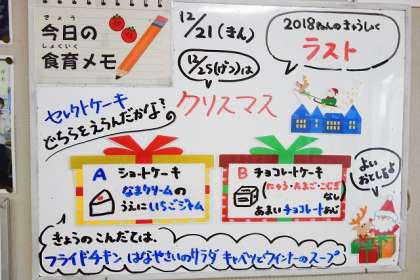 きょう
今日の
しょくいく
食育メモ
12/21(きん)
12/25(げつ)は
クリスマス
2018ねんのきゅうしょく
ラスト
セレクトケーキ
どちらをえらんだかな?
A ショートケーキ
なまクリームの
うえにいちごジャム
B チョコレートケーキ
(にゅう・たまご・こむぎ)
なし
あまいチョコレートあじ
よい
おとしを♪
きょうのこんだては、
フライドチキン はなやさいのサラダ キャベツとウインナーのスープ